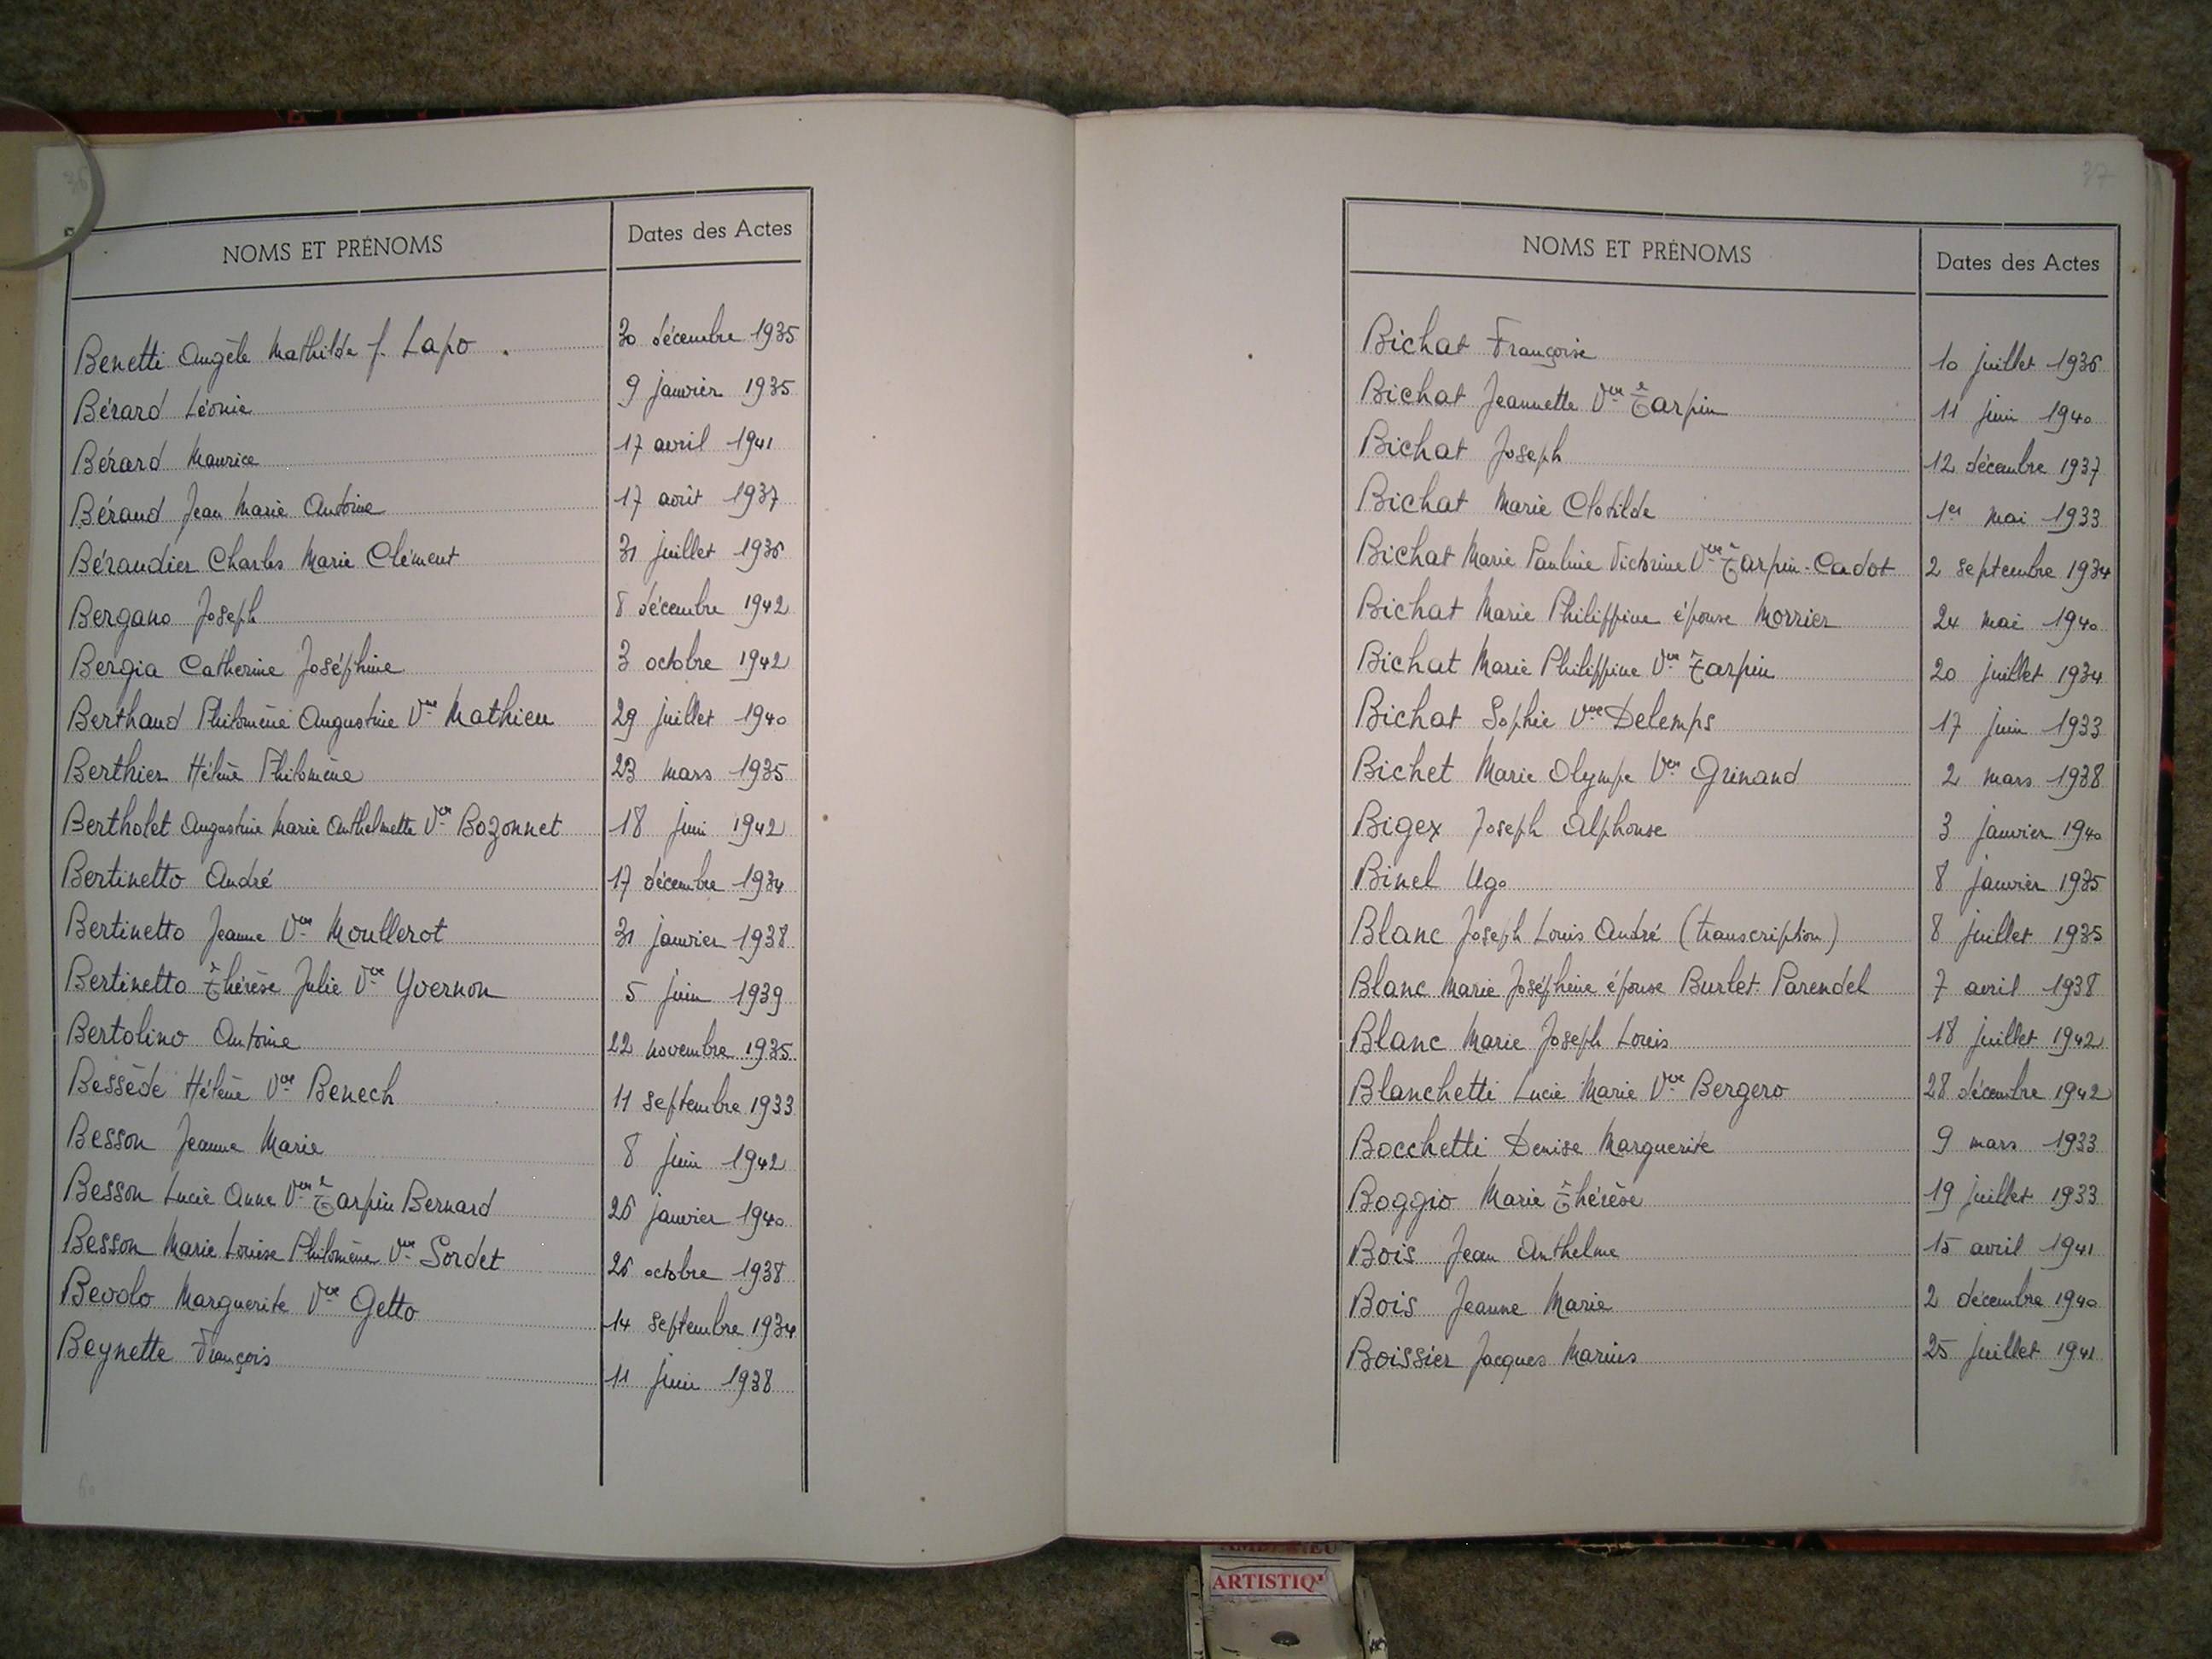 36
NOMS ET PRÉNOMS Dates des Actes
Benetti Angèle Mathilde f. Lapo 30 décembre 1935
Bérard Léonie 9 janvier 1935
Bérard Maurice 17 avril 1941
Béraud Jean Marie Antoine 17 août 1937
Béraudier Charles Marie Clément 31 juillet 1936
Bergano Joseph 8 décembre 1942
Bergia Catherine Joséphine 3 octobre 1942
Berthaud Philomène Augustine Vve Mathieu 29 juillet 1940
Berthier Hélène Philomène 23 mars 1935
Bertholet Augustine Marie Anthelmette Vve Bozonnet 18 juin 1942
Bertinetto André 17 décembre 1934
Bertinetto Jeanne Vve Moullerot 31 janvier 1938
Bertinetto Thérèse Julie Vve Yvernon 5 juin 1939
Bertolino Antoine 22 novembre 1935
Bessède Hélène Vve Benech 11 septembre 1933
Besson Jeanne Marie 8 juin 1942
Besson Lucie Anne Vve Tarpin Bernard 26 janvier 1940
Besson Marie Louise Philomène Vve Sordet 26 octobre 1938
Bevolo Marguerite Vve Getto 14 septembre 1934
Beynette François 11 juin 1938
37
NOMS ET PRÉNOMS Dates des Actes
Bichat Françoise 10 juillet 1936
Bichat Jeannette Vve Tarpin 11 juin 1940
Bichat Joseph 12 décembre 1937
Bichat Marie Clotilde 1er mai 1933
Bichat Marie Pauline Victorine Vve Tarpin-Cadot 2 septembre 1934
Bichat Marie Philippine épouse Morrier 24 mai 1940
Bichat Marie Philippine Vve Tarpin 20 juillet 1934
Bichat Sophie Vve Delemps 17 juin 1933
Bichet Marie Olympe Vve Grinand 2 mars 1938
Bigex Joseph Alphonse 3 janvier 1940
Binel Ugo 8 janvier 1935
Blanc Joseph Louis André (transcription) 8 juillet 1935
Blanc Marie Joséphine épouse Burlet-Parendel 7 avril 1938
Blanc Marie Joseph Louis 18 juillet 1942
Blanchetti Lucie Marie Vve Bergero 28 décembre 1942
Bocchetti Denise Marguerite 9 mars 1933
Boggio Marie Thérèse 19 juillet 1933
Bois Jean Anthelme 15 avril 1941
Bois Jeanne Marie 2 décembre 1940
Boissier Jacques Marius 25 juillet 1941
ARTISTIQ